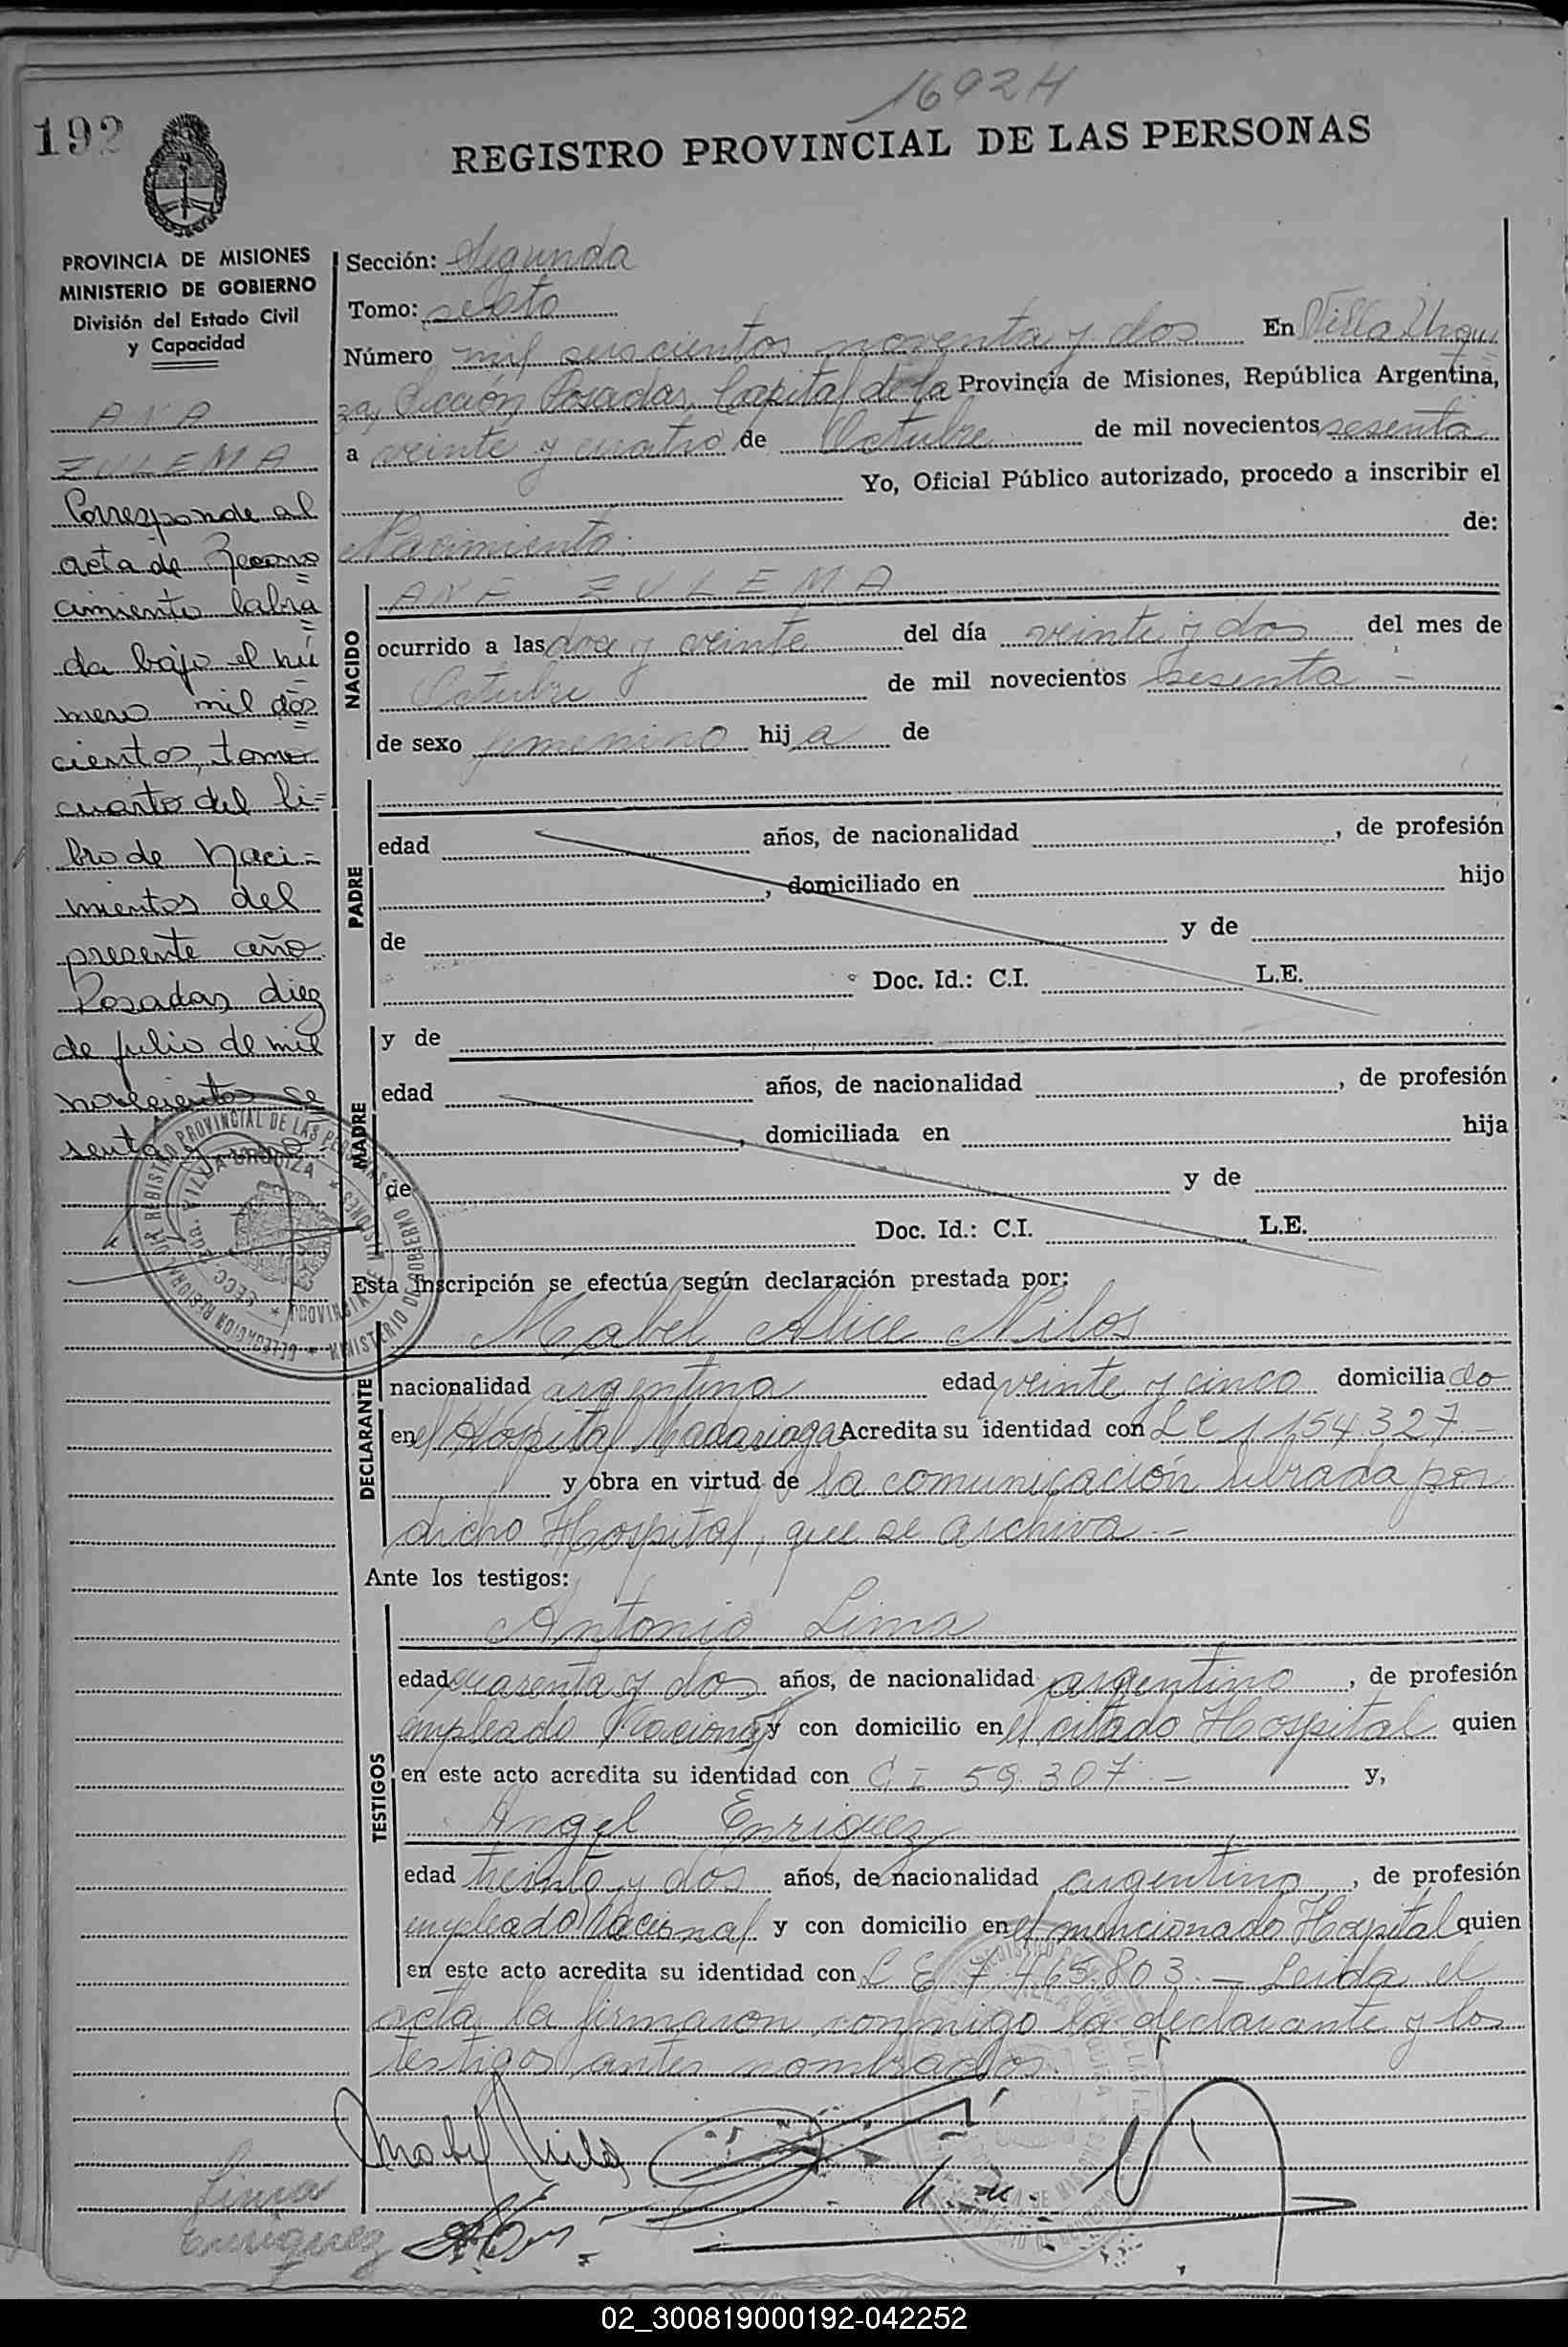 1692H
192
REGISTRO PROVINCIAL DE LAS PERSONAS
PROVINCIA DE MISIONES
MINISTERIO DE GOBIERNO
División del Estado Civil
y Capacidad
ZULEMA
Corresponde al
acta de Recono
cimiento labra
da bajo el nú
mero mil dos
cientos, tomo
cuarto del li=
bro de Naci=
mientos del
presente año
Posadas, diez
de julio de mil
novecientos se
senta y uno
Sección: Segunda
Tomo: sexto
Número mil seiscientos noventa y dos En Villa Urqui
za, Sección Posadas, Capital de la Provincia de Misiones, República Argentina,
a veinte y cuatro de Octubre de mil novecientos sesenta
Yo, Oficial Público autorizado, procedo a inscribir el
Nacimiento de:
NACIDO
ZULEMA
ocurrido a las doce y veinte del día veinte y dos del mes de
Octubre de mil novecientos sesenta -
de sexo femenino hija de
PADRE
edad años, de nacionalidad , de profesión
, domiciliado en hijo
de y de
Doc. Id.: C.I. L.E.
MADRE
y de
edad años, de nacionalidad , de profesión
, domiciliada en hija
de y de
Doc. Id.: C.I. L.E.
Esta inscripción se efectúa según declaración prestada por:
DECLARANTE
Mabel Alice Nilos
nacionalidad argentina edad veinte y cinco domiciliado
en el Hospital Madariaga Acredita su identidad con L C 1154327 -
y obra en virtud de la comunicación librada por
dicho Hospital, que se archiva. -
Ante los testigos:
TESTIGOS
Antonio Lima
edad cuarenta y dos años, de nacionalidad argentino, de profesión
empleado Nacional y con domicilio en el citado Hospital quien
en este acto acredita su identidad con C I 59.307 - y,
Angel Enriquez
edad treinta y dos años, de nacionalidad argentino, de profesión
empleado Nacional y con domicilio en el mencionado Hospital quien
en este acto acredita su identidad con L E 7.465.803. - Leida el
acta la firmaron conmigo la declarante y los
testigos antes nombrados.
Lima
Enriquez
02_300819000192-042252